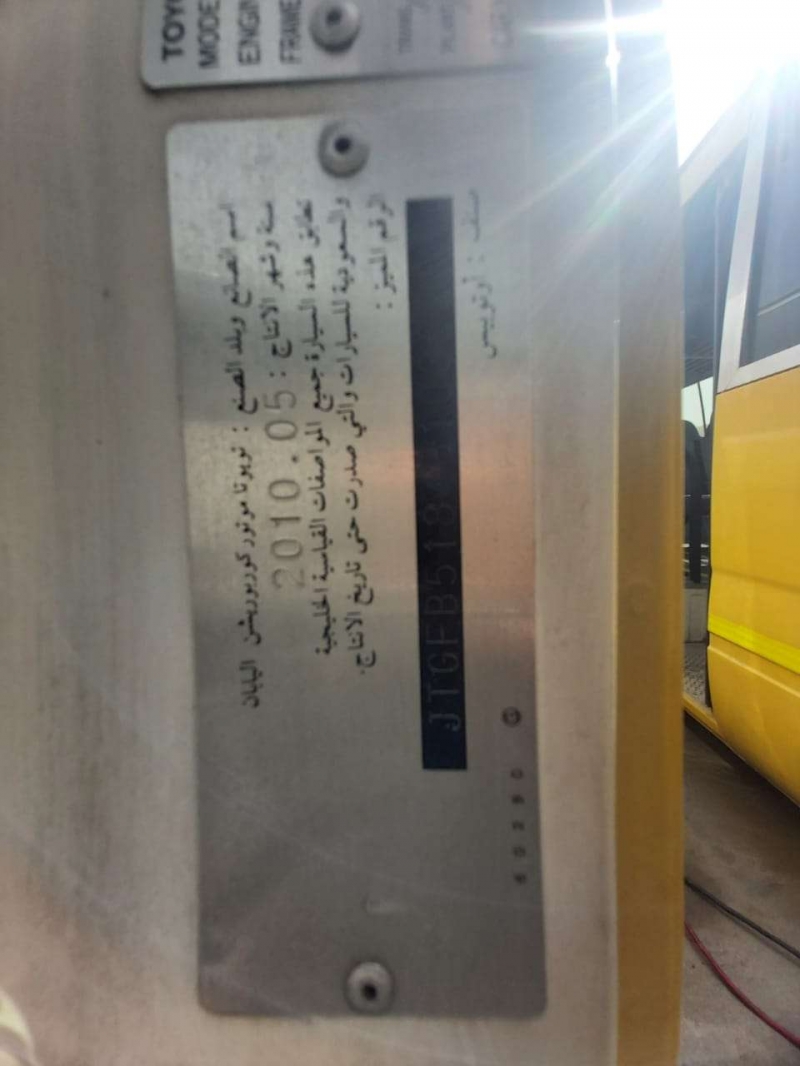 TOYO
MODE
ENGIN
FRAME
اسم الصانع وبلد الصنع : تويوتا موتور كوربوريشن اليابان
سنة وشهر الانتاج : 2010.05
تطابق هذه السيارة جميع المواصفات القياسية الخليجية
والسعودية للسيارات والتي صدرت حتى تاريخ الانتاج.
الرقم المميز :
JTGFB518
صنف : أوتوبيس
60290